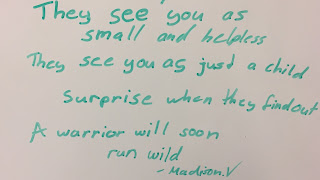 They see you as
small and helpless
They see you as just a child
Surprise when they find out
A warrior will soon
run wild
- Madison.V